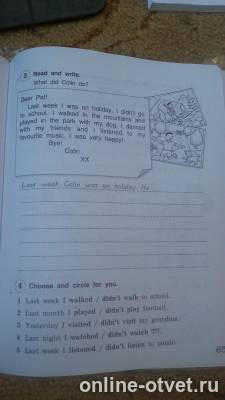 3 Read and write.
What did Colin do?
Dear Pat!
Last week I was on holiday. I didn't go
to school. I walked in the mountains and
played in the park with my dog. I danced
with my friends and I listened to my
favourite music. I was very happy!
Bye!
Colin
XX
Last week Colin was on holiday. He
4 Choose and circle for you.
1 Last week I walked / didn't walk to school.
2 Last month I played / didn't play football.
3 Yesterday I visited / didn't visit my grandma.
4 Last night I watched / didn't watch TV.
5 Last week I listened / didn't listen to music.
online-otvet.ru